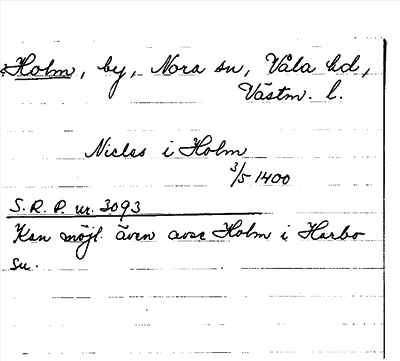 Holm, by, Nora sn, Våla hd,
Västm. l.
Niclas i Holm
3/5 1400
S. R. P. nr. 3093
Kan möjl. även avse Holm i Harbo
sn.